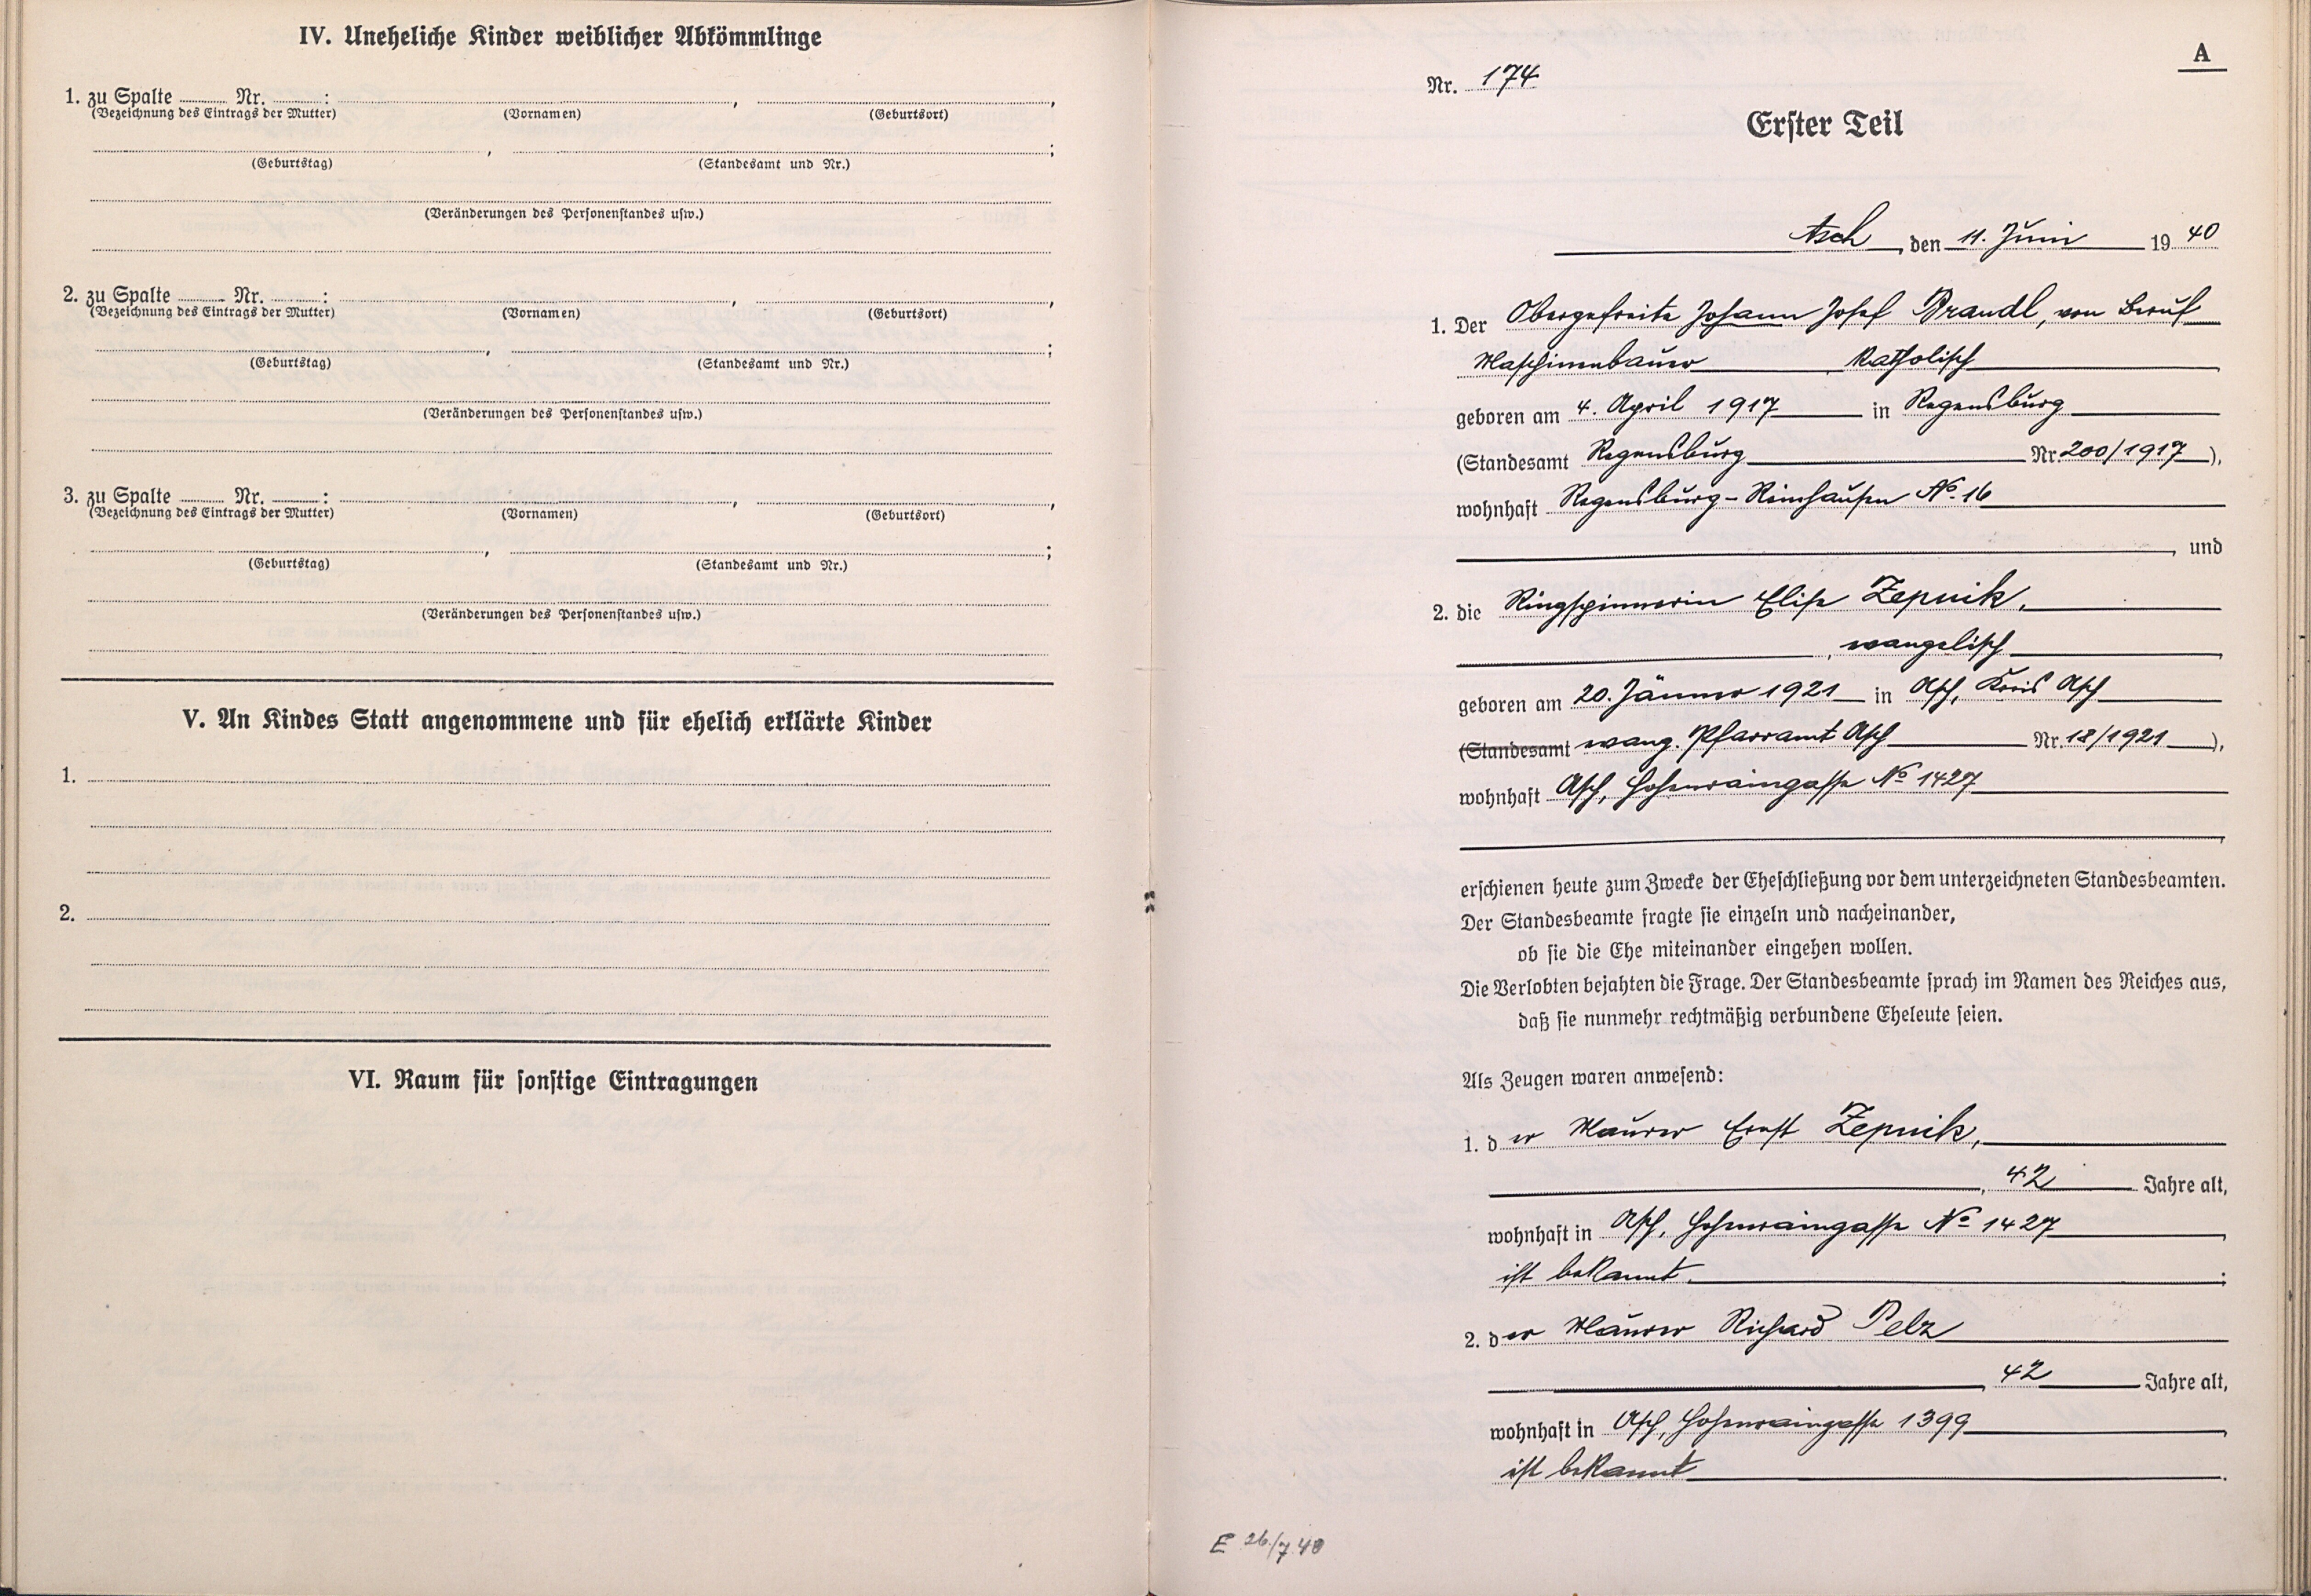 IV. Uneheliche Kinder weiblicher Abkömmlinge
1. zu Spalte ........ Nr. ........ : ........ , ........ ,
(Bezeichnung des Eintrags der Mutter) (Vornamen) (Geburtsort)
........ , ........ ;
(Geburtstag) (Standesamt und Nr.)
(Veränderungen des Personenstandes usw.)
2. zu Spalte ........ Nr. ........ : ........ , ........ ,
(Bezeichnung des Eintrags der Mutter) (Vornamen) (Geburtsort)
........ , ........ ;
(Geburtstag) (Standesamt und Nr.)
(Veränderungen des Personenstandes usw.)
3. zu Spalte ........ Nr. ........ : ........ , ........ ,
(Bezeichnung des Eintrags der Mutter) (Vornamen) (Geburtsort)
........ , ........ ;
(Geburtstag) (Standesamt und Nr.)
(Veränderungen des Personenstandes usw.)
V. An Kindes Statt angenommene und für ehelich erklärte Kinder
1.
2.
VI. Raum für sonstige Eintragungen
A
Nr. 174
Erster Teil
Asch, den 11. Juni 1940
1. Der Obergefreite Johann Josef Brandl, von Beruf
Maschinenbauer katholisch,
geboren am 4. April 1917 in Regensburg
(Standesamt Regensburg Nr. 200/1917),
wohnhaft Regensburg-Reinhausen No. 16
, und
2. die Ringspinnerin Elise Zepnik,
, evangelisch,
geboren am 20. Jänner 1921 in Asch, Kreis Asch
(Standesamt evang. Pfarramt Asch Nr. 18/1921),
wohnhaft Asch, Hohenraingasse No 1427
,
erschienen heute zum Zwecke der Eheschließung vor dem unterzeichneten Standesbeamten.
Der Standesbeamte fragte sie einzeln und nacheinander,
ob sie die Ehe miteinander eingehen wollen.
Die Verlobten bejahten die Frage. Der Standesbeamte sprach im Namen des Reiches aus,
daß sie nunmehr rechtmäßig verbundene Eheleute seien.
Als Zeugen waren anwesend:
1. der Maurer Ernst Zepnik,
, 42 Jahre alt,
wohnhaft in Asch, Hohenraingasse No 1427,
ist bekannt. ;
2. der Maurer Richard Pelz
, 42 Jahre alt,
wohnhaft in Asch, Hohenraingasse 1399,
ist bekannt .
E 26/7.40